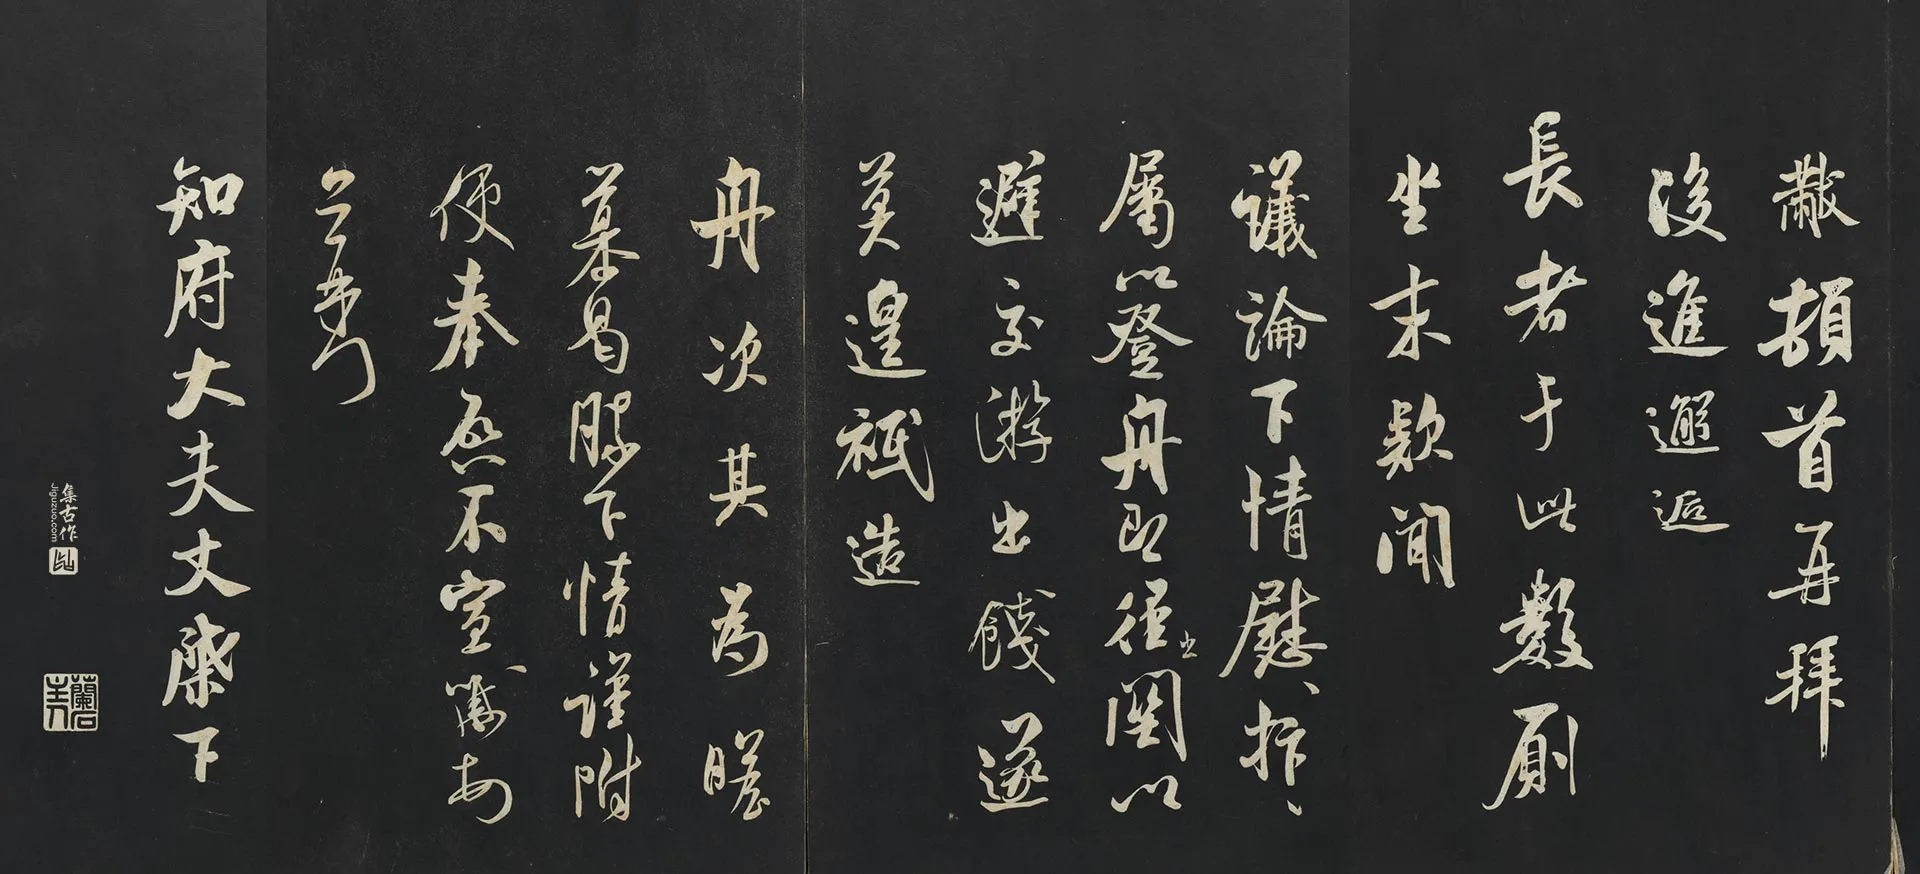 黻頓首再拜
後進邂逅
長者于此數廁
坐末欵聞
議論下情慰抃抃
屬以登舟即徑出關以
避交游出餞遂
莫遑祇造
舟次其為瞻
慕曷勝下情謹附
便奉啟不宣黻
頓首
知府大夫丈棨下
集古作
Jiguzuo.com